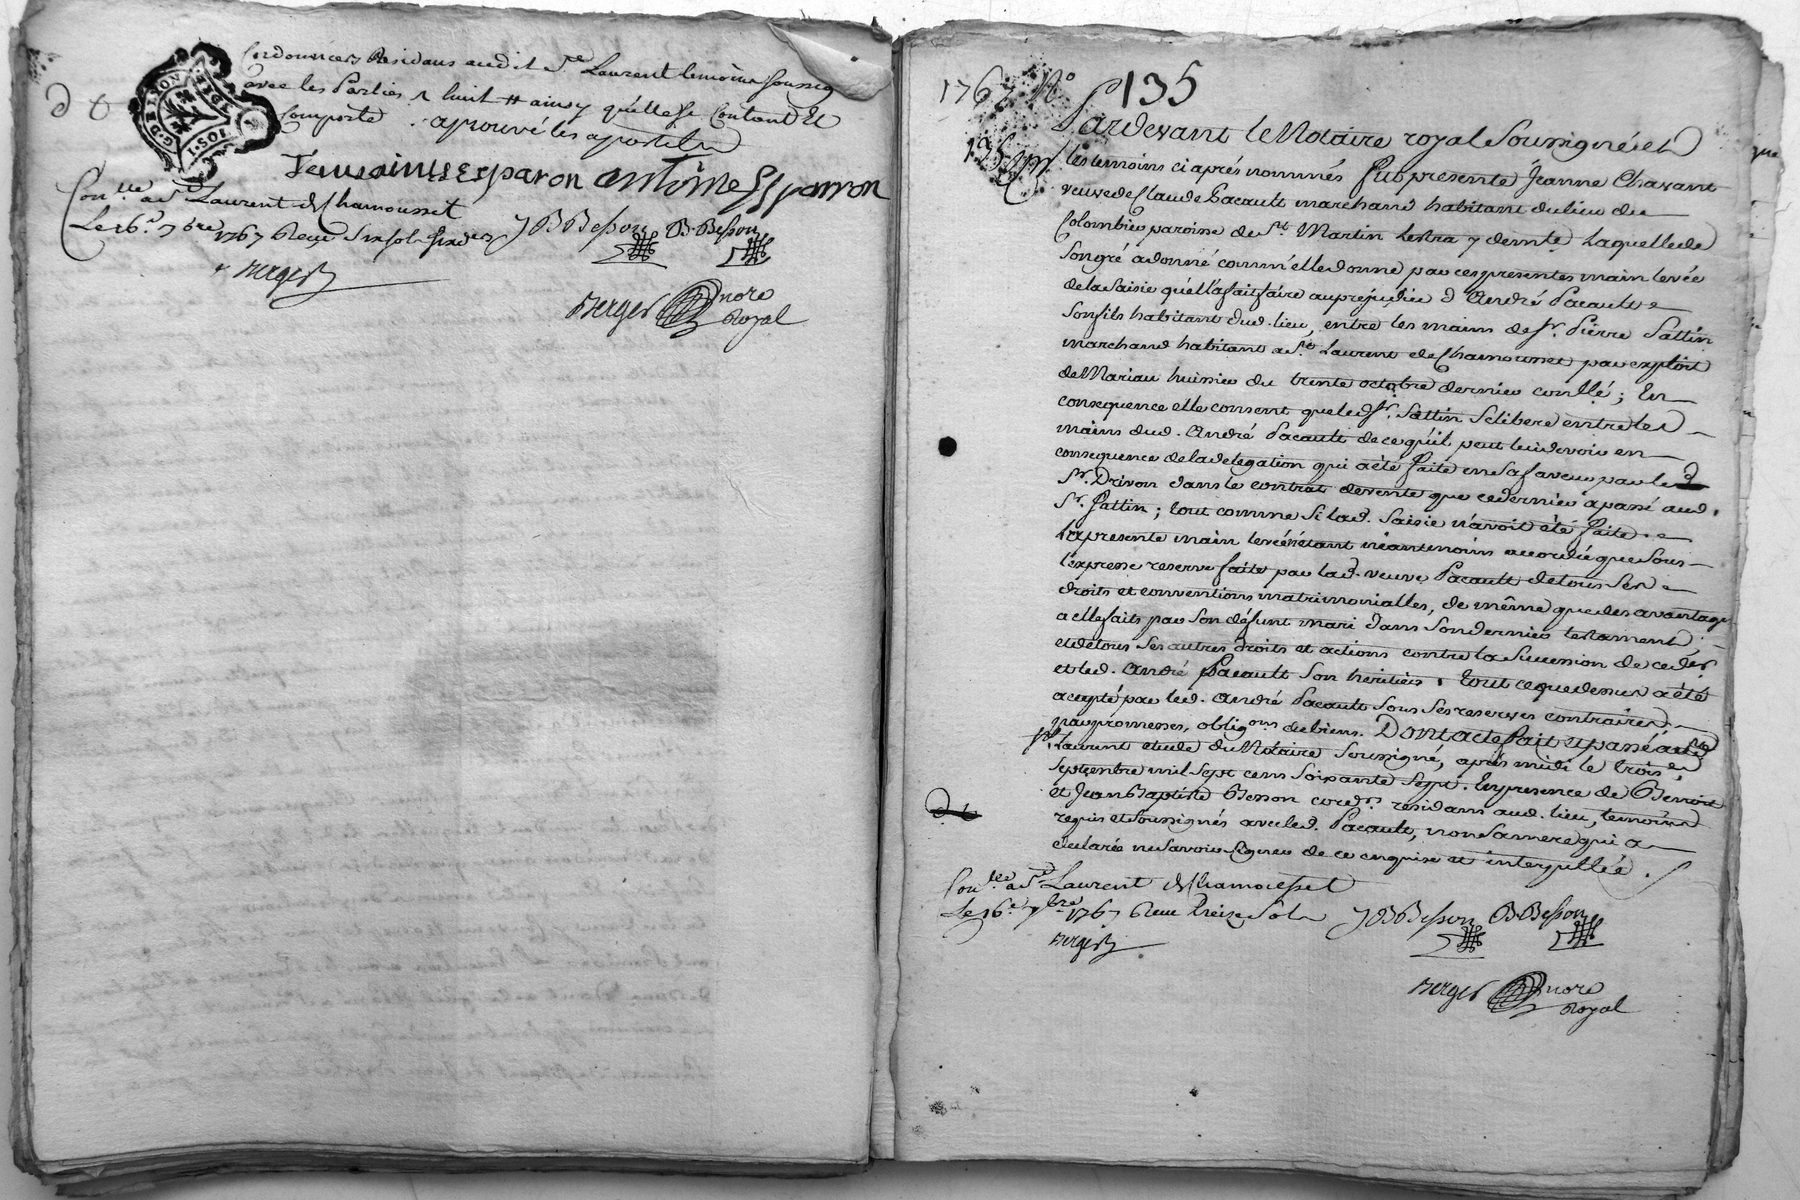 Cordonniers Residans audit St Laurent temoins soussig
avec les Parties huit # ainsy qu'elle se Contourt Et
Comporte . aprouvé les apostiles
G. DE LYON
Toussaint Esparon antoine Esparron
Con.lle a St Laurent de Chamousset
Le 16.e 7bre 1767 Receu Six sols six ders
JB Besson B. Besson
Berger
Berger nore
Royal
1767 No 135
135
Pardevant le Notaire royal Soussigné et
les temoins ci aprés nommés fut presente Jeanne Chavant
veuve de Claude Pacault marchand habitant du lieu du
Colombier paroisse de St. Martin Lestra y demte Laquelle de
Son gré a donné comm'elle donne par ces presentes main levée
de la Saisie qu'ell'a fait faire au prejudice d'André Pacault
Son fils habitant dud. lieu, entre les mains de Sr. Pierre Pattin
marchand habitant a St. Laurent de Chamousset par exploit
de Mariau huissier du trente octobre dernier conllé ; En
consequence elle consent que led. Sr. Pattin Se libere entre les
mains dud. André Pacault de ce qu'il peut lui devoir en
consequence de la delegation qui a été faite en Sa faveur par le d
Sr. Drivon dans le contrat de vente que ce dernier a passé aud.
Sr. Pattin ; tout comme Si lad. Saisie n'avoit été faite.
La presente main levée n'etant néantmoins accordée que Sous
l'expresse reserve faite par lad. veuve Pacault de tous Ses
droits et conventions matrimonialles, de même que des avantages
a elle faits par Son défunt mari dans Son dernier testament
et de tous Ses autres droits et actions contre la Succession de ce der
et led. André Pacault Son heritier. Tout ce que dessus a été
accepté par led. André Pacault Sous Ses reserves contraires
par promesses, obligons de biens. Dont acte fait et passé aud St
Laurent etude du Notaire Soussigné, aprés midi le trois
Septembre mil Sept cens Soixante Sept. En presence de Benoit
et Jean Baptiste Besson cordrs. residans aud. lieu, temoins
requis et Soussignés avec led. Pacault, non Sa mere qui a
declarée ne Savoir Signer de ce enquise et interpellée .
Con.lle a St Laurent de Chamousset
Le 16.e 7bre 1767 Receu Treize Sols
JB Besson B. Besson
Berger
Berger nore
Royal